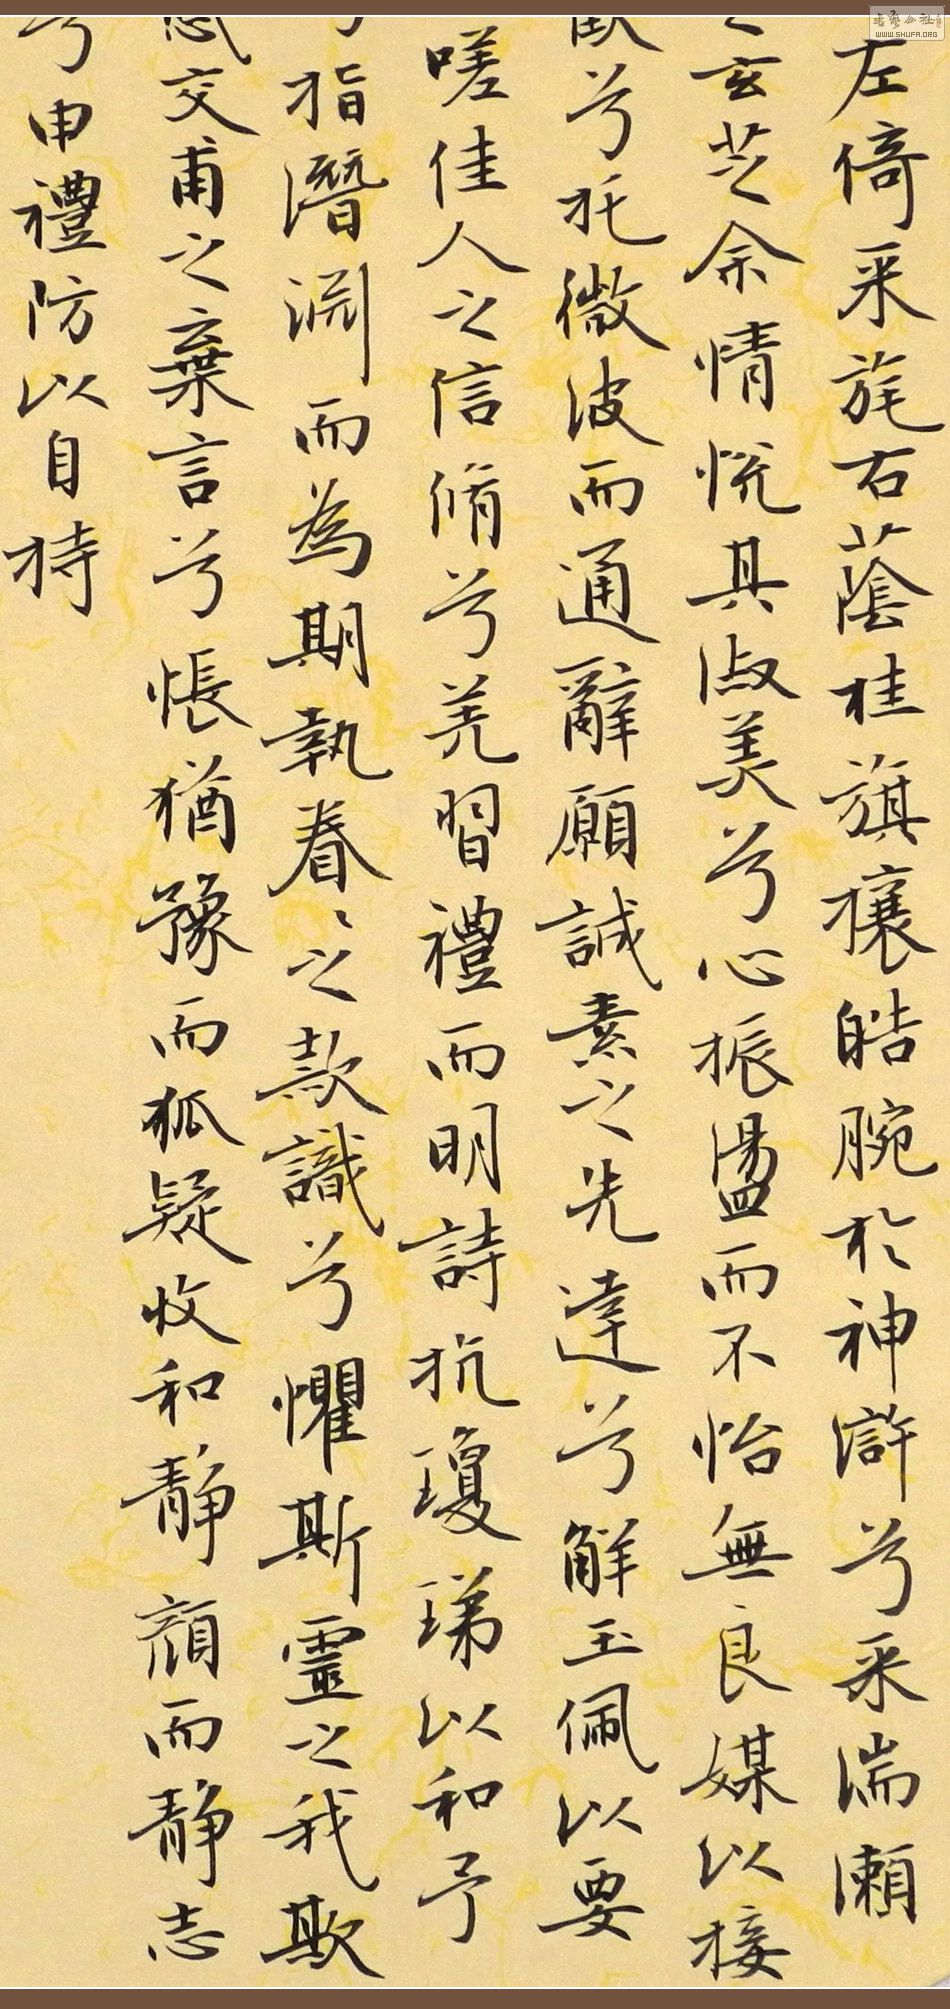 左倚采旄右蔭桂旗攘皓腕於神滸兮采湍瀨
之玄芝余情悅其淑美兮心振盪而不怡無良媒以接
歡兮托微波而通辭願誠素之先達兮解玉佩以要
嗟佳人之信脩兮羌習禮而明詩抗瓊珶以和予
兮指潛淵而為期執眷眷之款識兮懼斯靈之我欺
感交甫之棄言兮悵猶豫而狐疑收和靜顏而靜志
兮申禮防以自持
WWW.SHUFA.ORG